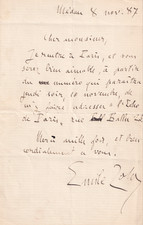 Médan 8 nov. 87
Cher monsieur,
Je rentre à Paris, et vous
serez bien aimable, à partir
du numéro qui paraîtra
jeudi soir, 10 novembre, de
m'y faire adresser l'Echo
de Paris, rue Ballu
Merci mille fois, et bien
cordialement à vous.
Emile Zola